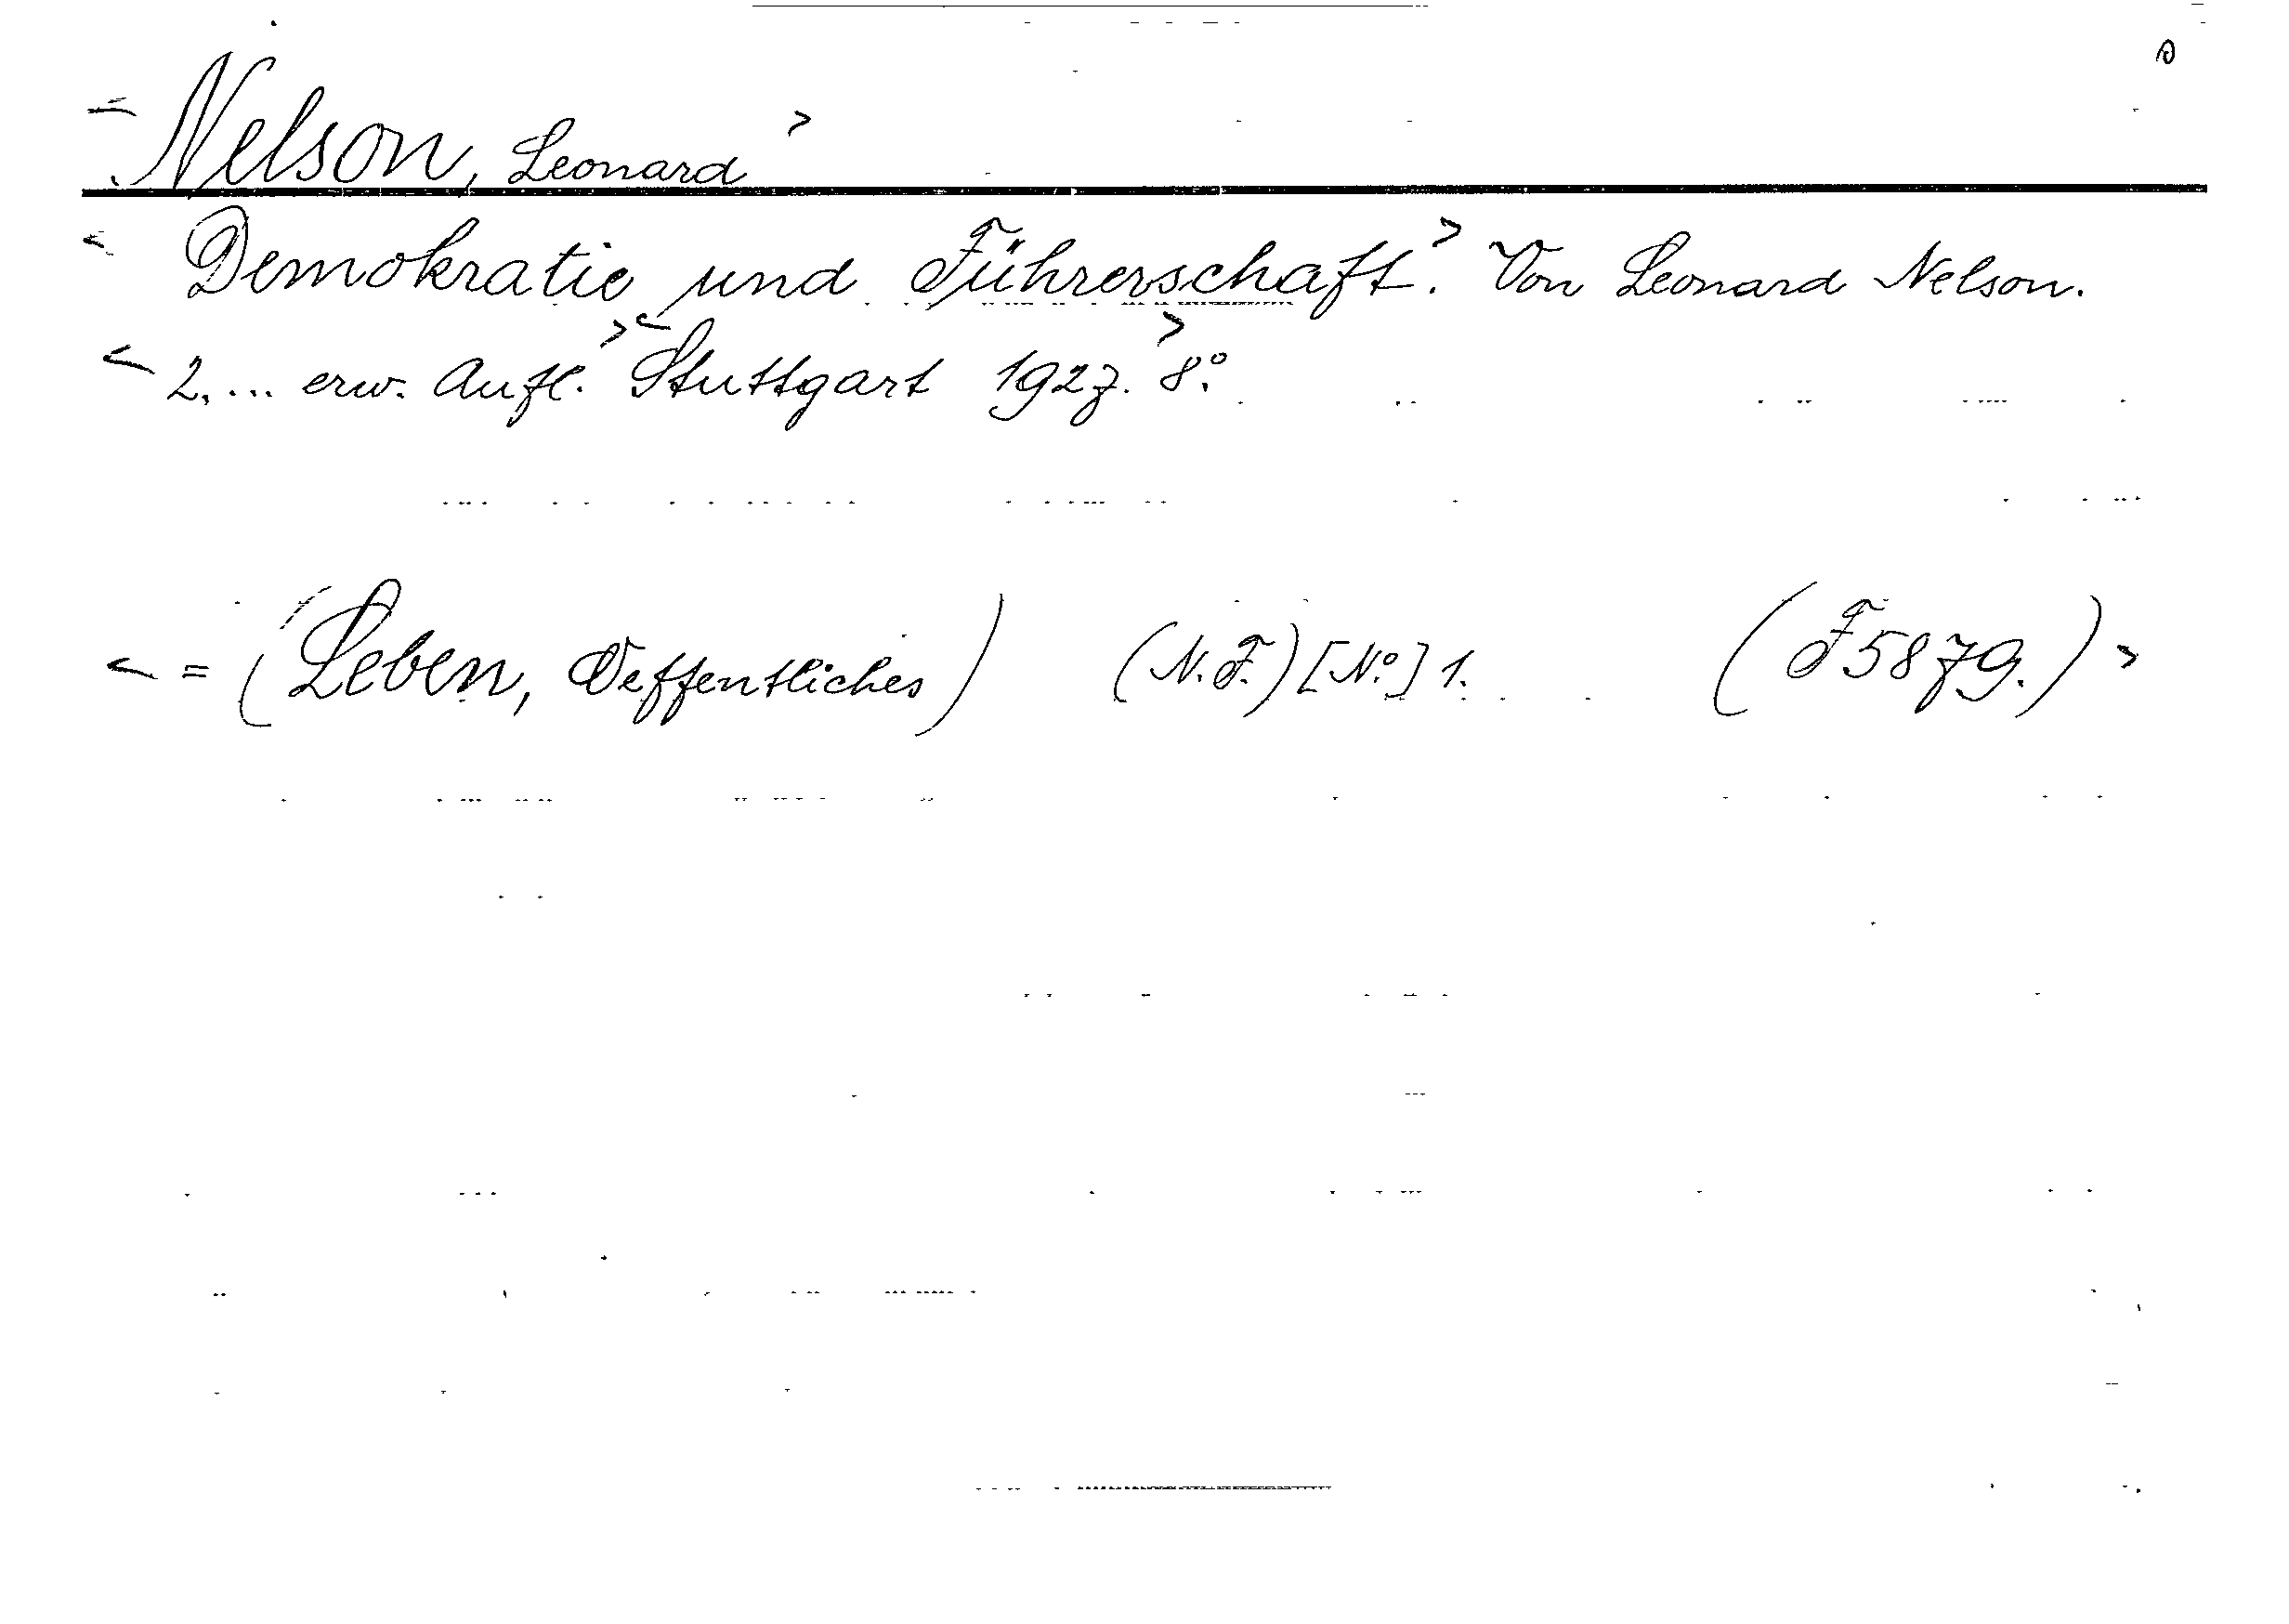 < Nelson, Leonard >
< Demokratie und Führerschaft.> Von Leonard Nelson.
< 2.... erw. Aufl.> < Stuttgart 1927.> 8°.
< = (Leben, Oeffentliches) (N.F.) [No] 1. (F 5879.) >